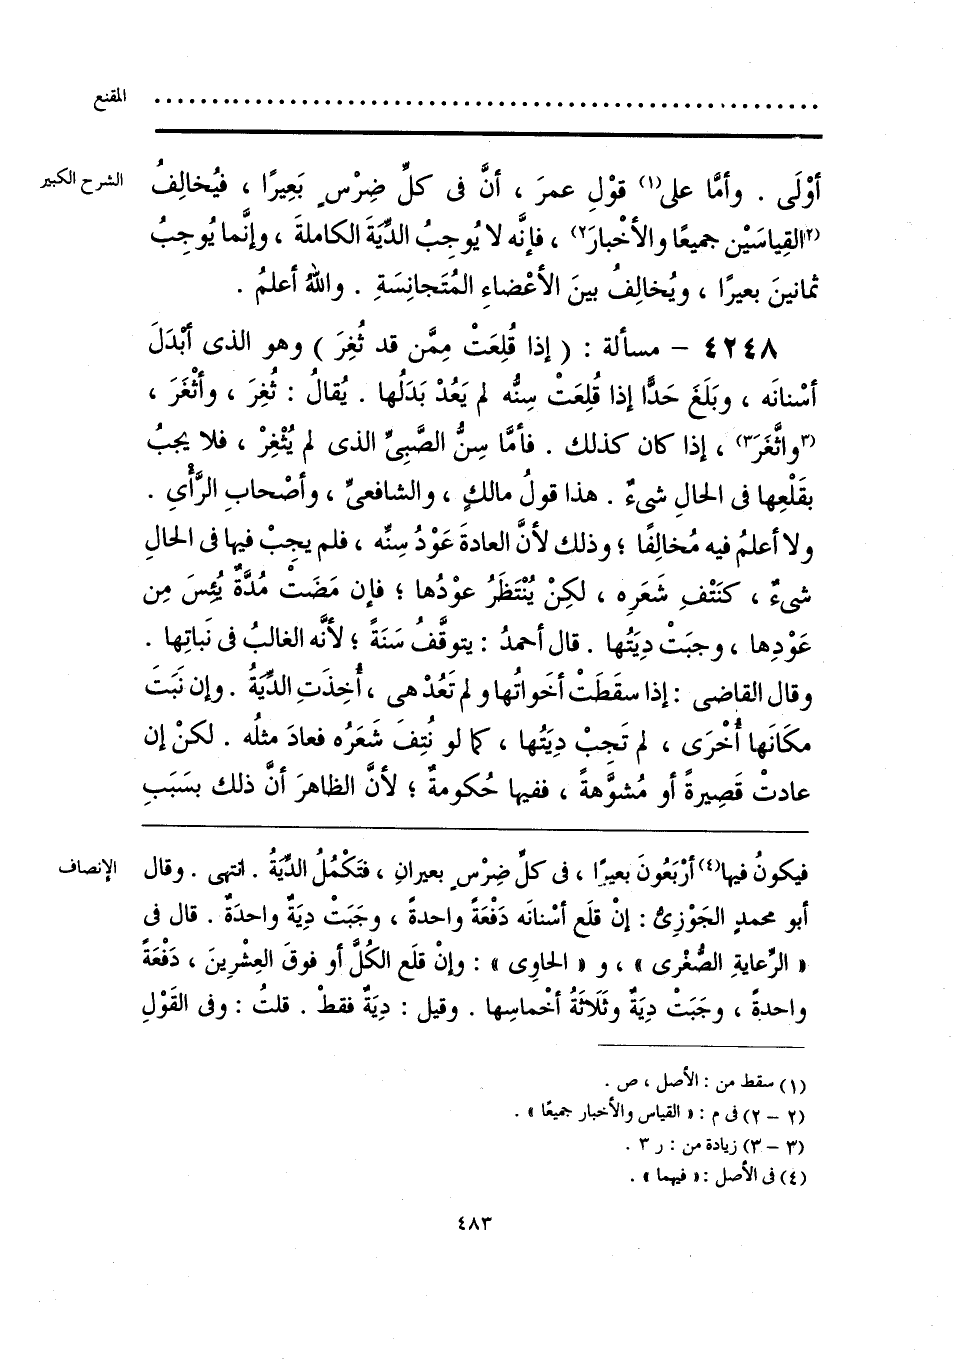 المقنع ............................................................
الشرح الكبير
أوْلَى . وأمَّا على(١) قوْلِ عمرَ ، أنَّ فى كلِّ ضِرْسٍ بَعِيرًا ، فيُخالِفُ
(٢القِياسَيْن جميعًا والأخْبارَ٢) ، فإنَّه لا يُوجِبُ الدِّيَةَ الكاملةَ ، وإنَّما يُوجِبُ
ثمانينَ بعيرًا ، ويُخالِفُ بينَ الأعْضاءِ المُتَجانِسَةِ . واللهُ أعلمُ .
٤٢٤٨ – مسألة : ( إذا قُلِعَتْ مِمَّن قد ثُغِرَ ) وهو الذى أبْدَلَ
أسْنانَه ، وبَلَغَ حَدًّا إذا قُلِعَتْ سِنُّه لم يَعُدْ بَدَلُها . يُقالُ : ثُغِرَ ، وأثْغَرَ ،
(٣واثَّغَرَ٣) ، إذا كان كذلك . فأمَّا سِنُّ الصَّبِىِّ الذى لم يُثْغِرْ ، فلا يجبُ
بقَلْعِها فى الحالِ شىءٌ . هذا قولُ مالكٍ ، والشافعىِّ ، وأصْحابِ الرَّأْىِ .
ولا أعلمُ فيه مُخالِفًا ؛ وذلك لأنَّ العادةَ عَوْدُ سِنِّه ، فلم يجِبْ فيها فى الحالِ
شىءٌ ، كنَتْفِ شَعَرِه ، لكِنْ يُنْتَظَرُ عوْدُها ؛ فإن مَضَتْ مُدَّةٌ يُئِسَ مِن
عَوْدِها ، وجبَتْ دِيَتُها . قال أحمدُ : يتوقَّفُ سَنَةً ؛ لأنَّه الغالبُ فى نَباتِها .
وقال القاضى : إذا سقَطَتْ أخَواتُها ولم تَعُدْ هى ، أُخِذَتِ الدِّيَةُ . وإن نَبَتَ
مكانَها أُخْرَى ، لم تَجِبْ دِيَتُها ، كما لو نُتِفَ شَعَرُه فعادَ مثلُه . لكنْ إن
عادتْ قَصِيرةً أو مُشَوَّهةً ، ففيها حُكومةٌ ؛ لأنَّ الظاهرَ أنَّ ذلك بسَبَبِ
الإنصاف
فيكونُ فيها(٤) أرْبَعُونَ بعيرًا ، فى كلِّ ضِرْسٍ بعيرانِ ، فتَكْمُلُ الدِّيَةُ . انتهى . وقال
أبو محمدٍ الجَوْزِىُّ : إنْ قلَع أسْنانَه دَفْعَةً واحدةً ، وجَبَتْ دِيَةٌ واحدَةٌ . قال فى
« الرِّعايةِ الصُّغْرى » ، و « الحاوِى » : وإنْ قلَع الكُلَّ أو فوقَ العِشْرِينَ ، دَفْعَةً
واحدةً ، وجَبَتْ دِيَةٌ وثَلَاثَةُ أخْماسِها . وقيل : دِيَةٌ فقطْ . قلتُ : وفى القَوْلِ
(١) سقط من : الأصل ، ص .
(٢ – ٢) فى م : « القياس والأخبار جميعًا » .
(٣ – ٣) زيادة من : ر ٣ .
(٤) فى الأصل : « فيهما » .
٤٨٣